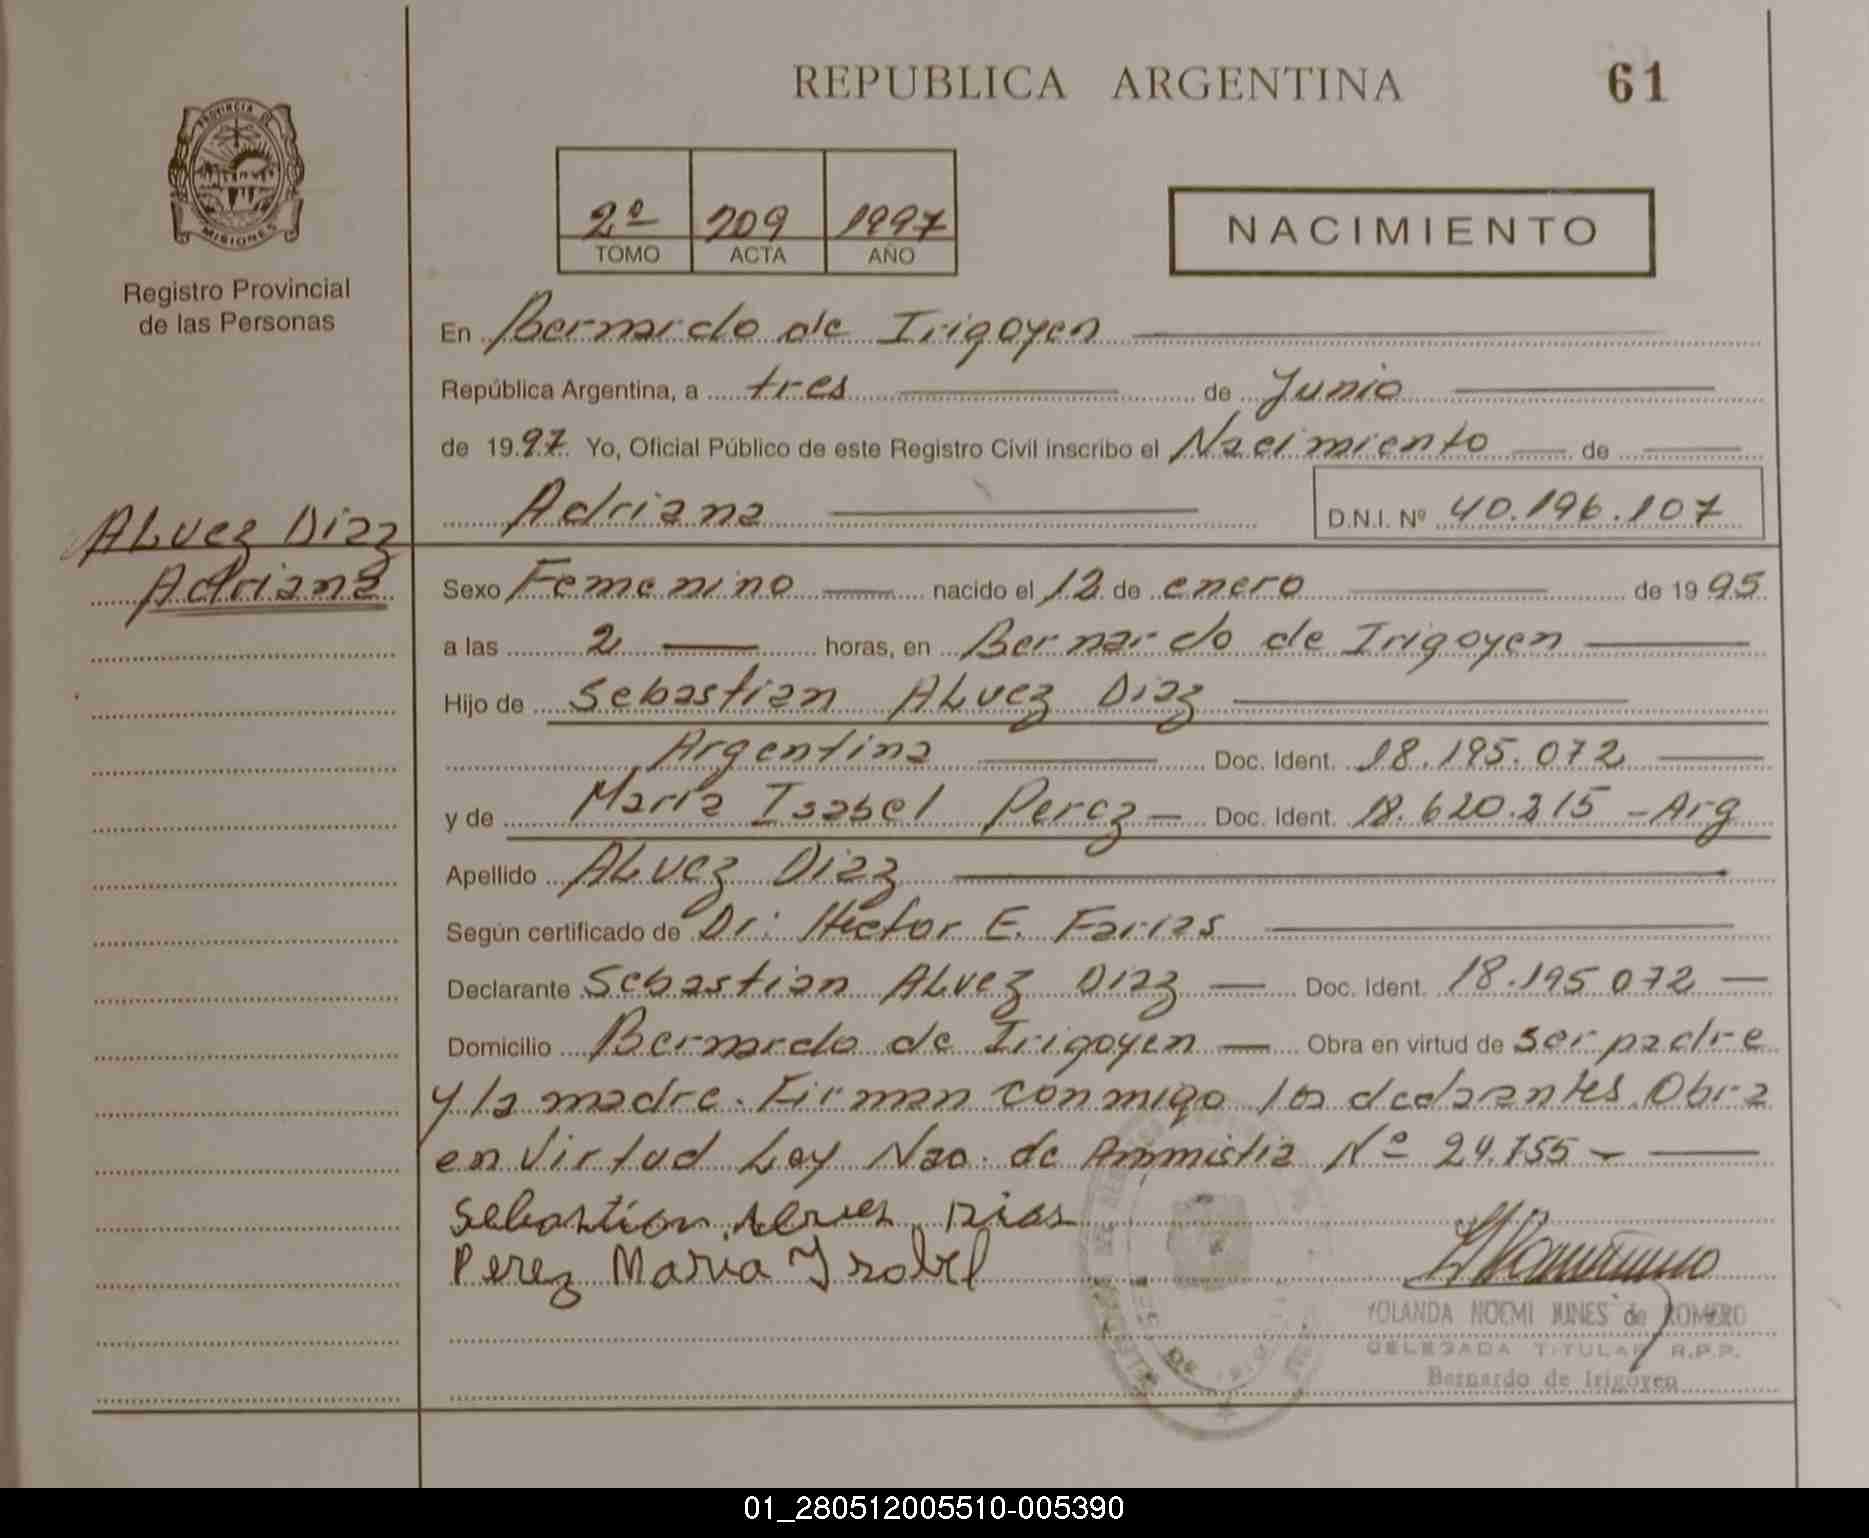 REPUBLICA ARGENTINA 61
PROVINCIA DE
MISIONES
Registro Provincial
de las Personas
2º 209 1997
TOMO ACTA AÑO
NACIMIENTO
En Bernardo de Irigoyen
República Argentina, a tres de Junio
de 1997. Yo, Oficial Público de este Registro Civil inscribo el Nacimiento de
Adriana D.N.I. Nº 40.196.107
ALvez Diaz
Adriana
Sexo Femenino nacido el 12 de enero de 1995
a las 2 horas, en Bernardo de Irigoyen
Hijo de Sebastian ALvez Diaz
Argentina Doc. Ident. 18.195.072
y de Maria Isabel Perez — Doc. Ident. 18.620.215 - Arg
Apellido ALvez Diaz
Según certificado de Dr: Hector E. Farias
Declarante Sebastian ALvez Diaz — Doc. Ident. 18.195 072 —
Domicilio Bernardo de Irigoyen — Obra en virtud de ser padre
y la madre. Firman conmigo los declarantes. Obra
en Virtud Ley Nao. de Ammistia Nº 24.755 -
Sebastian Alves Dias
Perez Maria Ysabel
YOLANDA NOEMI JUNES de ROMERO
DELEGADA TITULAR R.P.P.
Bernardo de Irigoyen
01_280512005510-005390